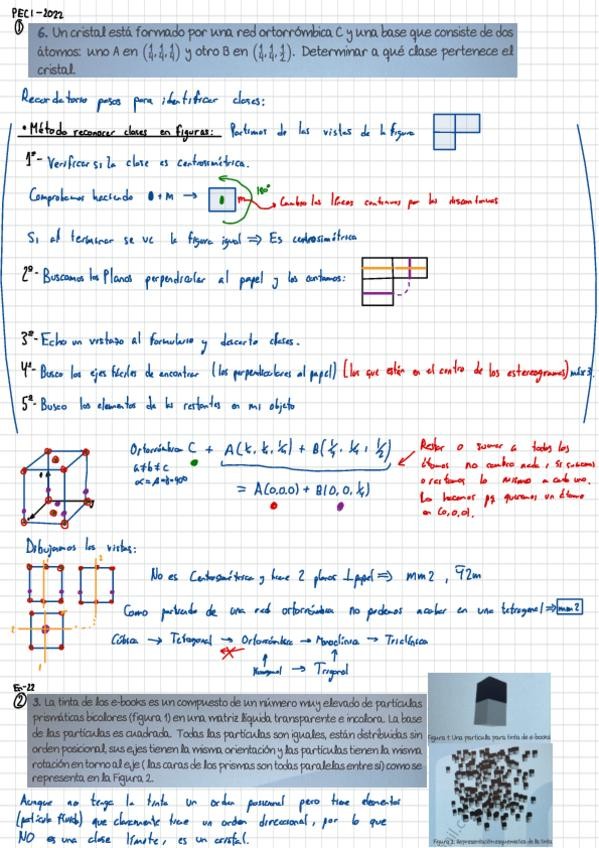 PEC1-2022
① 6. Un cristal está formado por una red ortorrómbica C y una base que consiste de dos
átomos: uno A en (1/4, 1/4, 1/4) y otro B en (1/4, 1/4, 1/2). Determinar a qué clase pertenece el
cristal.
Recordatorio pasos para identificar clases:
• Método reconocer clases en figuras: Partimos de las vistas de la figura
1º- Verificar si la clase es centrosimétrica.
Comprobamos haciendo + M → 180º m Cambio las líneas continuas por las discontinuas
Si al terminar se ve la figura igual ⇒ Es centrosimétrica
2º- Buscamos los Planos perpendicular al papel y los contamos:
3º- Echo un vistazo al formulario y descarto clases.
4º- Busco los ejes fáciles de encontrar (los perpendiculares al papel) (los que están en el centro de los estereogramas) máx 3.
5º- Busco los elementos de las restantes en mi objeto
Ortorrómbica C + A(1/4, 1/4, 1/4) + B(1/4, 1/4, 1/2)
a≠b≠c
= A(0,0,0) + B(0, 0, 1/4)
Restar o sumar a todos los
átomos no cambia nada, si sumamos
o restamos lo mismo a cada uno.
Lo hacemos pq queremos un átomo
en (0,0,0).
Dibujamos las vistas:
No es Centrosimétrica y tiene 2 planos ⊥ papel ⇒ mm2, 4̄2m
Como partiendo de una red ortorrómbica no podemos acabar en una tetragonal ⇒ mm2
Cúbica → Tetragonal → Ortorrómbica → Monoclínica → Triclínica
Hexagonal → Trigonal
En-22
② 3. La tinta de los e-books es un compuesto de un número muy elevado de partículas
prismáticas bicolores (figura 1) en una matriz líquida transparente e incolora. La base
de las partículas es cuadrada. Todas las partículas son iguales, están distribuidas sin
orden posicional, sus ejes tienen la misma orientación y las partículas tienen la misma
rotación en torno al eje (las caras de los prismas son todas paralelas entre sí) como se
representa en la Figura 2.
Figura 1: Una partícula para tinta de e-books
Figura 2: Representación esquemática de la tinta
Aunque no tenga la tinta un orden posicional pero tiene elementos
(partícula fluido) que claramente tiene un orden direccional, por lo que
NO es una clase límite, es un cristal.